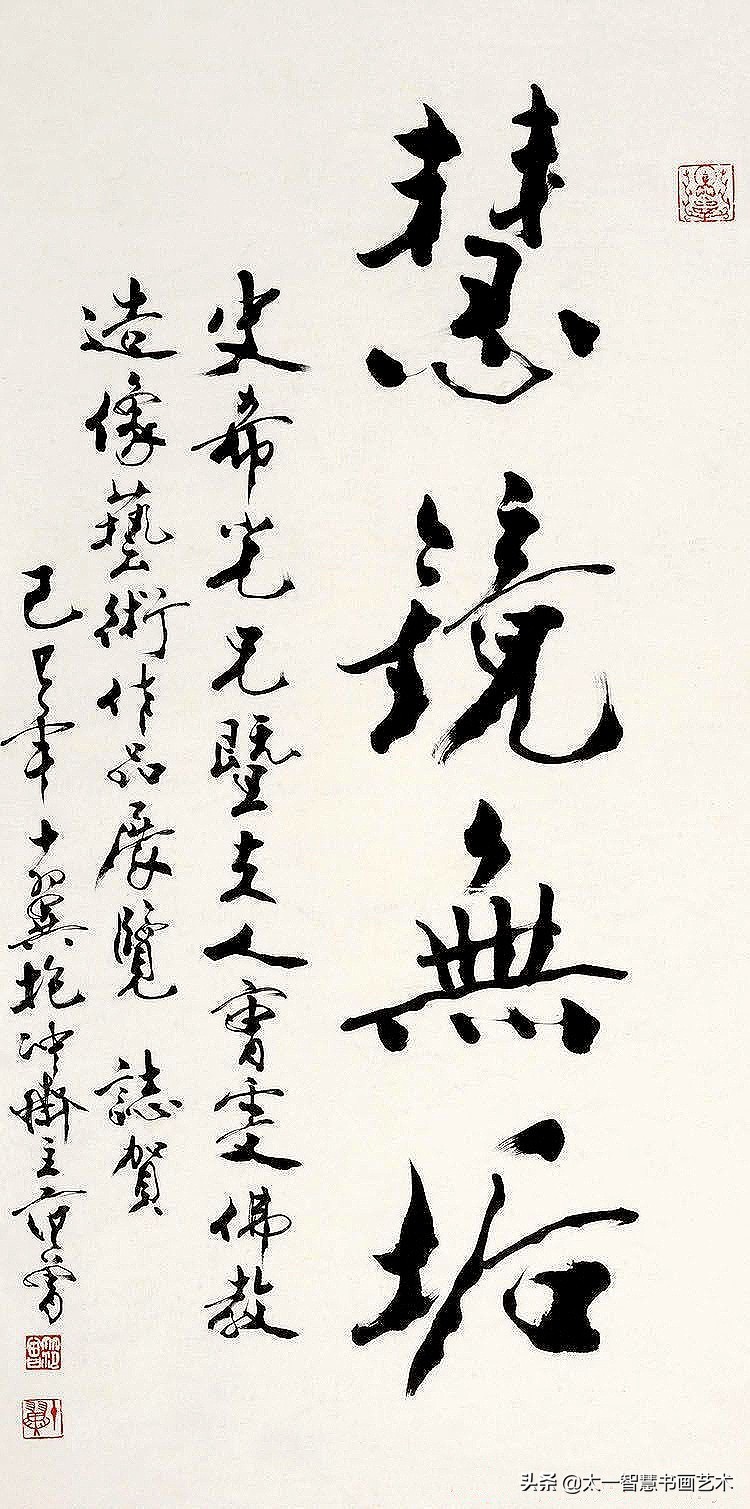 慧鏡無垢
史希光兄暨夫人曹雯佛教
造像藝術作品展覽 誌賀
己年十翼抱冲齋主范曾
范曾
十翼
头条 @太一智慧书画艺术